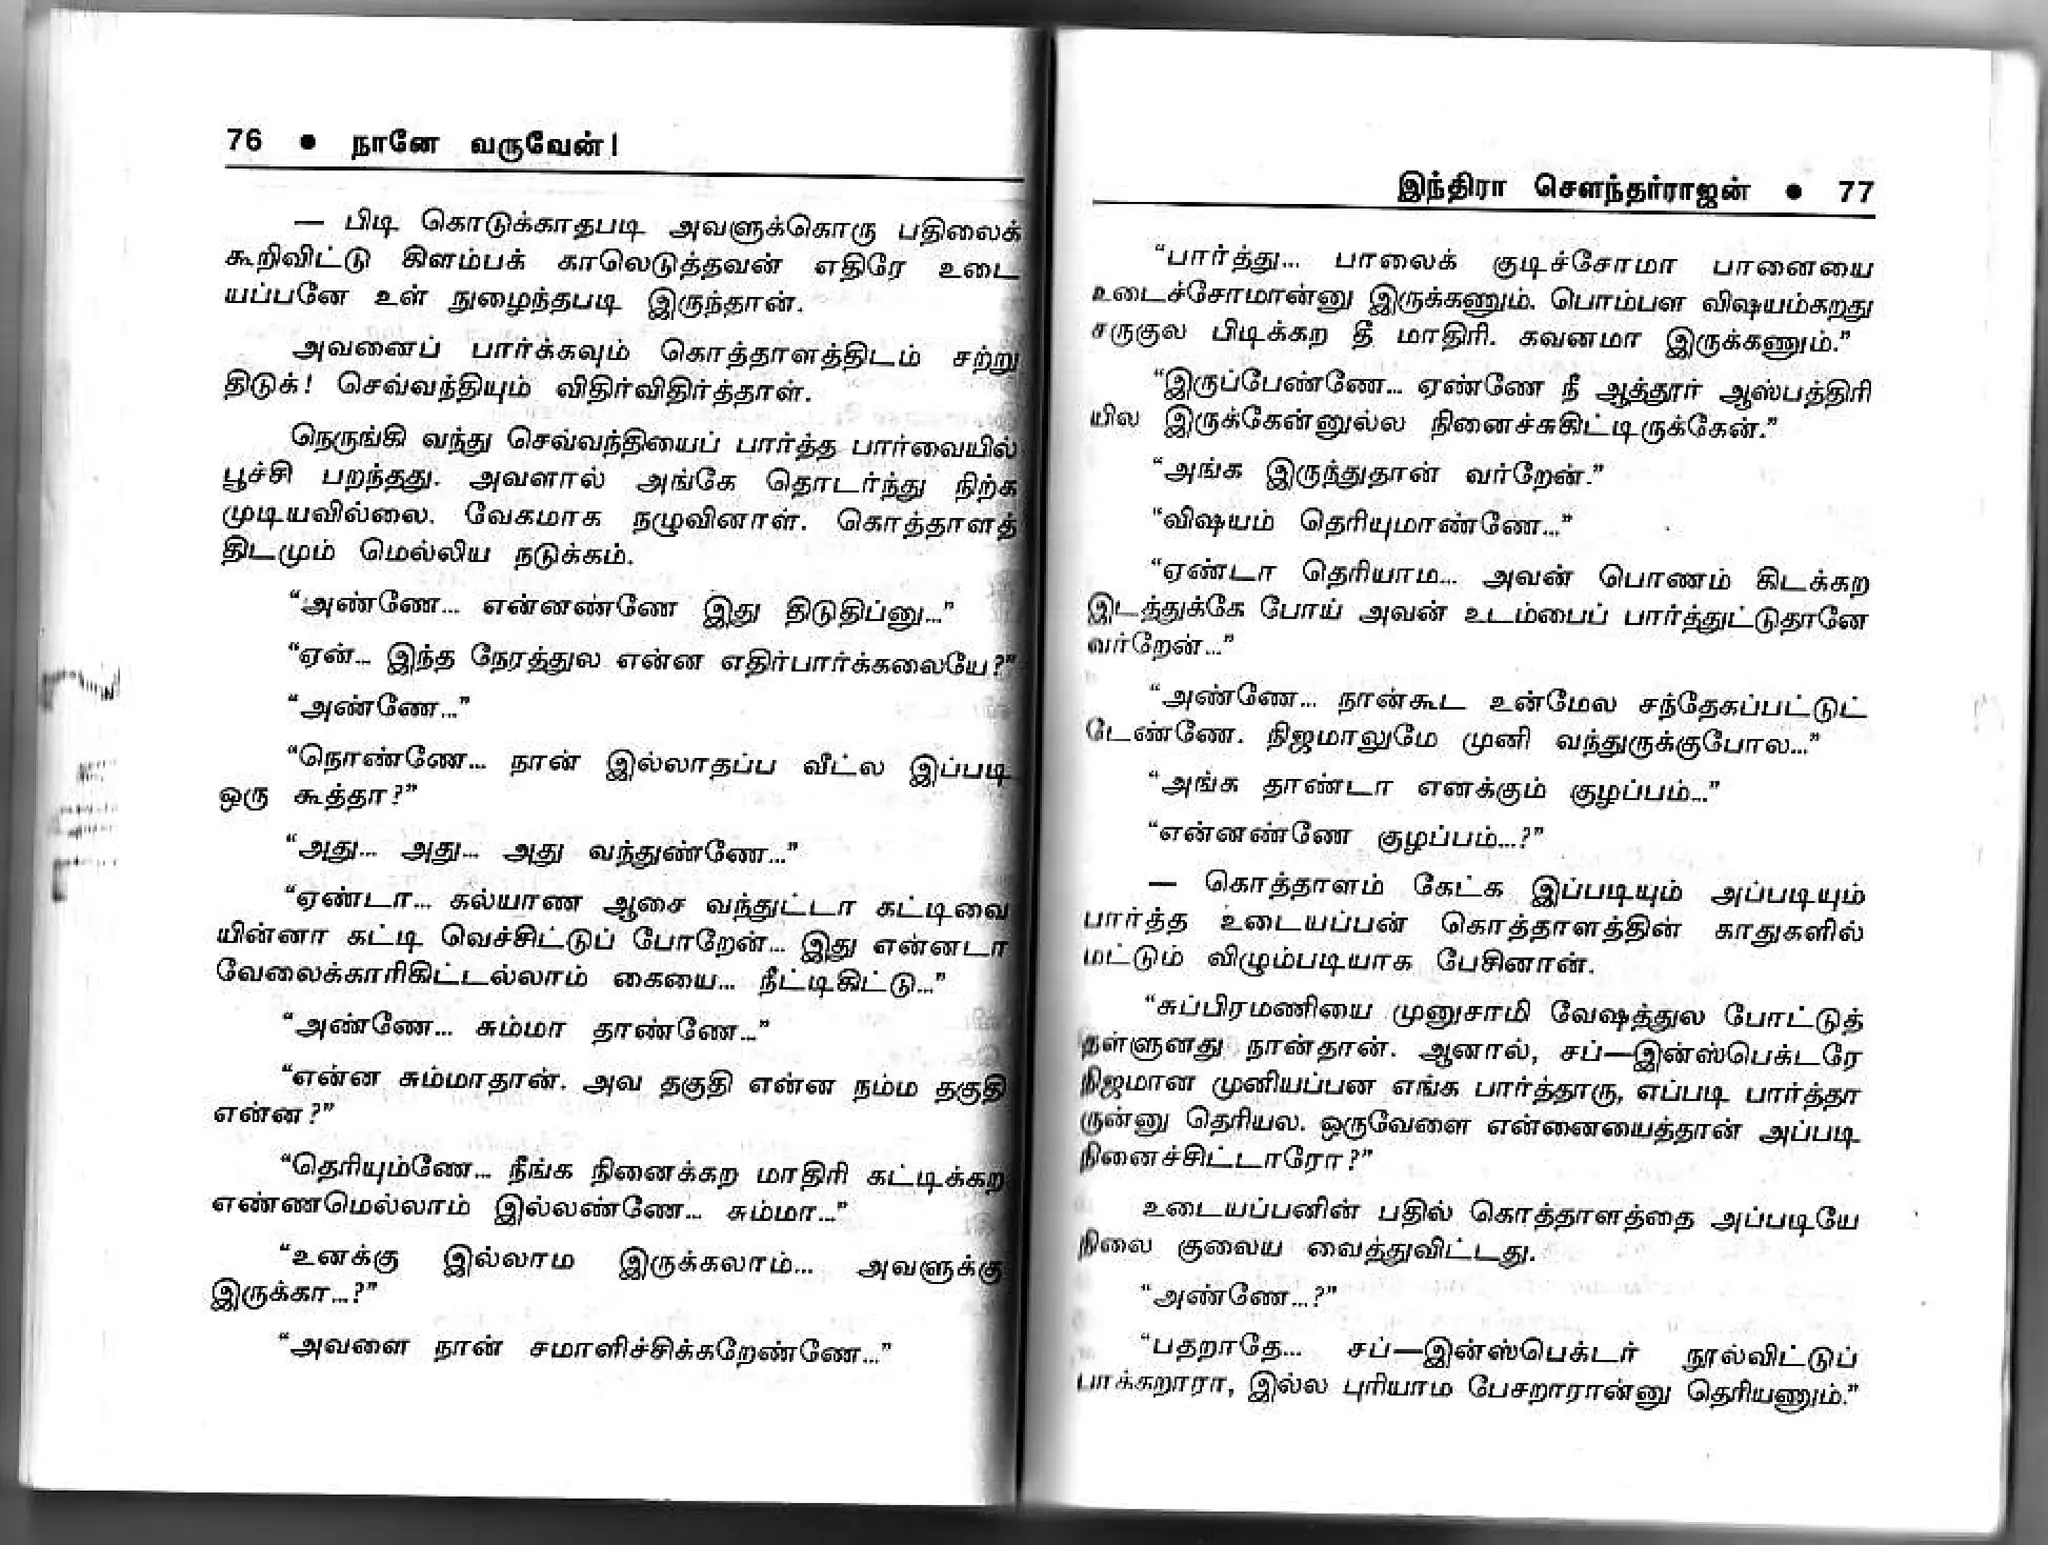 76 ● நானே வருவேன்!
— பிடி கொடுக்காதபடி அவளுக்கொரு பதிலைக்
கூறிவிட்டு கிளம்பக் காலெடுத்தவன் எதிரே உடை
யப்பனே உள் நுழைந்தபடி இருந்தான்.
அவனைப் பார்க்கவும் கொத்தாளத்திடம் சற்று
திடுக்! செவ்வந்தியும் விதிர்விதிர்த்தாள்.
நெருங்கி வந்து செவ்வந்தியைப் பார்த்த பார்வையில்
பூச்சி பறந்தது. அவளால் அங்கே தொடர்ந்து நிற்க
முடியவில்லை. வேகமாக நழுவினாள். கொத்தாளத்
திடமும் மெல்லிய நடுக்கம்.
“அண்ணே... என்னண்ணே இது திடுதிப்னு...”
“ஏன்... இந்த நேரத்துல என்ன எதிர்பார்க்கலையே?”
“அண்ணே...”
“நொண்ணே... நான் இல்லாதப்ப வீட்ல இப்படி
ஒரு கூத்தா?”
“அது... அது... அது வந்துண்ணே...”
“ஏண்டா... கல்யாண ஆசை வந்துட்டா கட்டிவை
யின்னா கட்டி வெச்சிட்டுப் போறேன்... இது என்னடா
வேலைக்காரிகிட்டல்லாம் கையை... நீட்டிகிட்டு...”
“அண்ணே... சும்மா தாண்ணே...”
“என்ன சும்மாதான். அவ தகுதி என்ன நம்ம தகுதி
என்ன?”
“தெரியும்ணே... நீங்க நினைக்கற மாதிரி கட்டிக்கற
எண்ணமெல்லாம் இல்லண்ணே... சும்மா...”
“உனக்கு இல்லாம இருக்கலாம்... அவளுக்கு
இருக்கா...?”
“அவளை நான் சமாளிச்சிக்கறேண்ணே...”
இந்திரா சௌந்தர்ராஜன் ● 77
“பார்த்து... பாலைக் குடிச்சோமா பானையை
உடைச்சோமான்னு இருக்கணும். பொம்பள விஷயம்கறது
சருகுல பிடிக்கற தீ மாதிரி. கவனமா இருக்கணும்.”
“இருப்பேண்ணே... ஏண்ணே நீ ஆத்தூர் ஆஸ்பத்திரி
யில இருக்கேன்னுல்ல நினைச்சுகிட்டிருக்கேன்.”
“அங்க இருந்துதான் வர்றேன்.”
“விஷயம் தெரியுமாண்ணே...”
“ஏண்டா தெரியாம... அவன் பொணம் கிடக்கற
இடத்துக்கே போய் அவன் உடம்பைப் பார்த்துட்டுதானே
வர்றேன்...”
“அண்ணே... நான்கூட உன்மேல சந்தேகப்பட்டுட்
டேண்ணே. நிஜமாலுமே முனி வந்துருக்குபோல...”
“அங்க தாண்டா எனக்கும் குழப்பம்...”
“என்னண்ணே குழப்பம்...?”
— கொத்தாளம் கேட்க இப்படியும் அப்படியும்
பார்த்த உடையப்பன் கொத்தாளத்தின் காதுகளில்
மட்டும் விழும்படியாக பேசினான்.
“சுப்பிரமணியை முனுசாமி வேஷத்துல போட்டுத்
தள்ளுனது நான்தான். ஆனால், சப்—இன்ஸ்பெக்டரே
நிஜமான முனியப்பன எங்க பார்த்தாரு, எப்படி பார்த்தா
ருன்னு தெரியல. ஒருவேளை என்னையைத்தான் அப்படி
நினைச்சிட்டாரோ?”
உடையப்பனின் பதில் கொத்தாளத்தை அப்படியே
நிலை குலைய வைத்துவிட்டது.
“அண்ணே...?”
“பதறாதே... சப்—இன்ஸ்பெக்டர் நூல்விட்டுப்
பாக்கறாரா, இல்ல புரியாம பேசறாரான்னு தெரியணும்.”